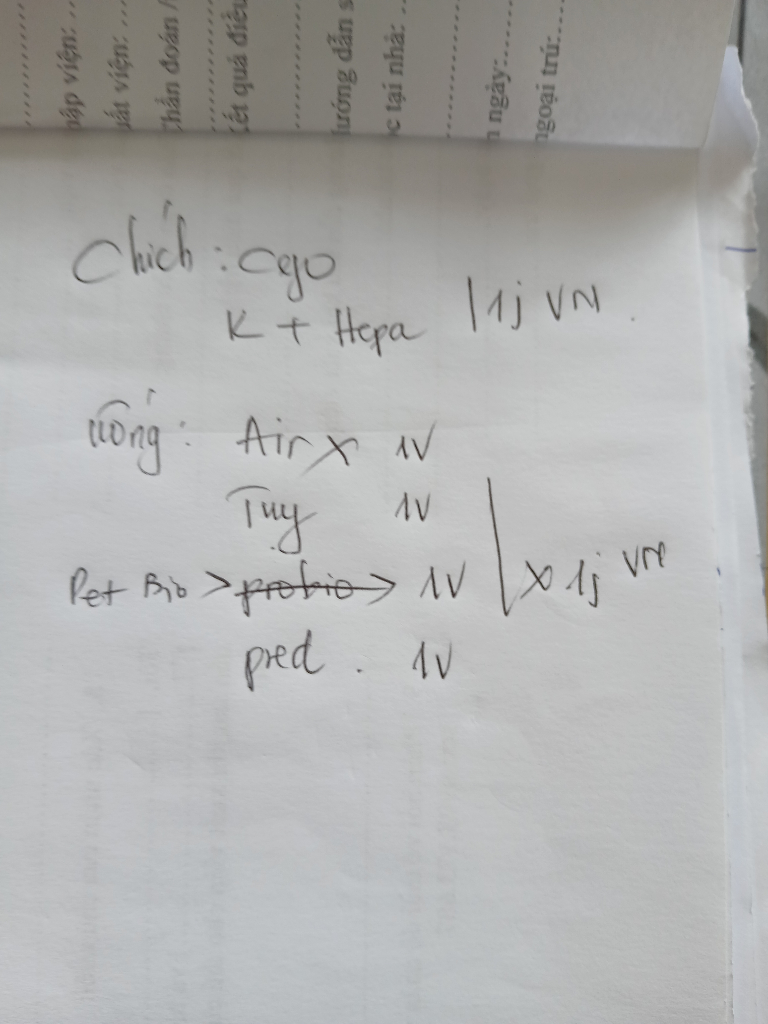 nhập viện: ...
uất viện: ...
Chẩn đoán /
Kết quả điều
Hướng dẫn s
c tại nhà: ..
n ngày:......
ngoại trú:....
Chích : Cego
K + Hepa | 1j VN
Uống : Air X 1V
Tuy 1V
Pet Bio > probio > 1V x 1j VN
pred . 1V